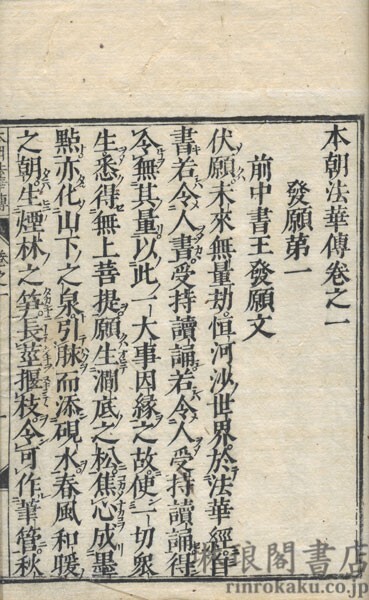 本朝法華傳卷之一
發願第一
前中書王發願文
伏願未來無量劫恒河沙世界於法華經自
書若令人書受持讀誦若令人受持讀誦得
令無其量以此一大事因緣之故使一切衆
生悉得無上菩提願生澗底之松焦心成墨
點亦化山下之泉引脉而添硯水春風和暖
之朝生煙林之笋長莖握枝令可作筆管秋
琳琅閣書店
rinrokaku.co.jp